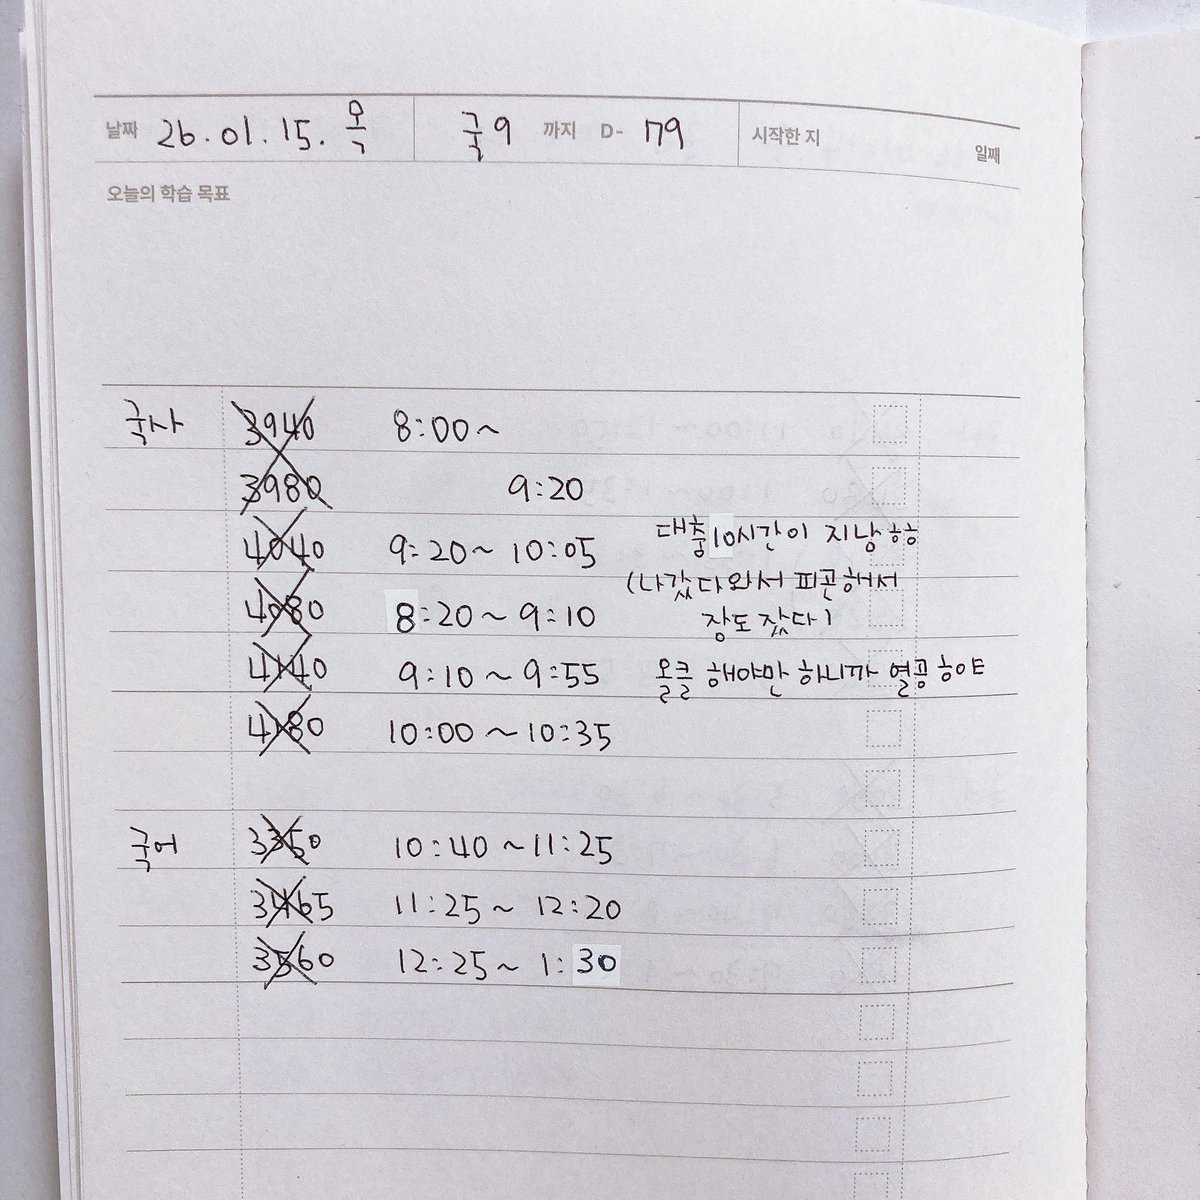 날짜 26.01.15. 목 국9 까지 D- 79 시작한 지 일째
오늘의 학습 목표
국사 3940 8:00~
3980 9:20
4040 9:20~ 10:05 대충 10시간이 지낭 ㅎㅎ
(나갔다와서 피곤해서
4080 8:20 ~ 9:10 잠도 잤다)
4140 9:10 ~ 9:55 올클 해야만 하니까 열공 하야ㅑ
4180 10:00 ~ 10:35
국어 3350 10:40 ~ 11:25
3465 11:25 ~ 12:20
3560 12:25 ~ 1:30